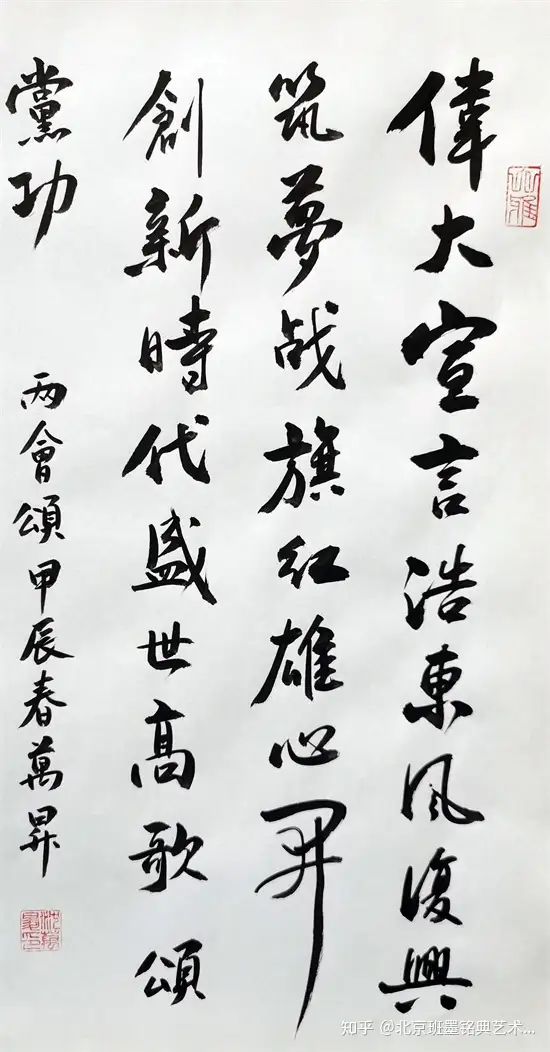 偉大宣言浩東風復興
筑夢战旗紅雄心開
創新時代盛世高歌頌
黨功
兩會頌甲辰春萬昇
知乎 @北京班墨铭典艺术...